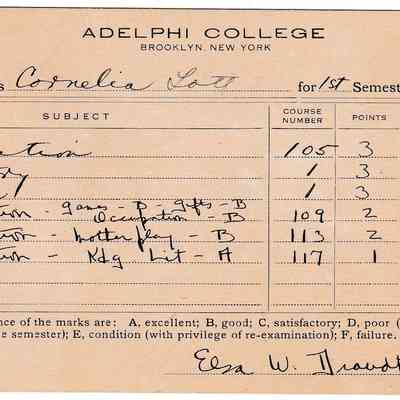 ADELPHI COLLEGE
BROOKLYN, NEW YORK
s Cornelia Lott for 1st Semest
SUBJECT COURSE NUMBER POINTS
ation 105 3
1 3
1 3
tion - games - B - gifts - B
Occupation - B 109 2
tion - mother play - B 113 2
tion - Kdg Lit - A 117 1
nce of the marks are: A, excellent; B, good; C, satisfactory; D, poor (
e semester); E, condition (with privilege of re-examination); F, failure.
Elsa W.